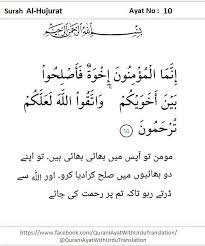 Surah Al-Hujurat Ayat No : 10
بِسْمِ اللَّهِ الرَّحْمَٰنِ الرَّحِيمِ
إِنَّمَا الْمُؤْمِنُونَ إِخْوَةٌ فَأَصْلِحُوا
بَيْنَ أَخَوَيْكُمْ ۚ وَاتَّقُوا اللَّهَ لَعَلَّكُمْ
تُرْحَمُونَ ۝١٠
مومن تو آپس میں بھائی بھائی ہیں۔ تو اپنے
دو بھائیوں میں صلح کرادیا کرو۔ اور الله سے
ڈرتے رہو تاکہ تم پر رحمت کی جائے
https://www.facebook.com/QuraniAyatWithUrduTranslation/
@QuraniAyatWithUrduTranslation